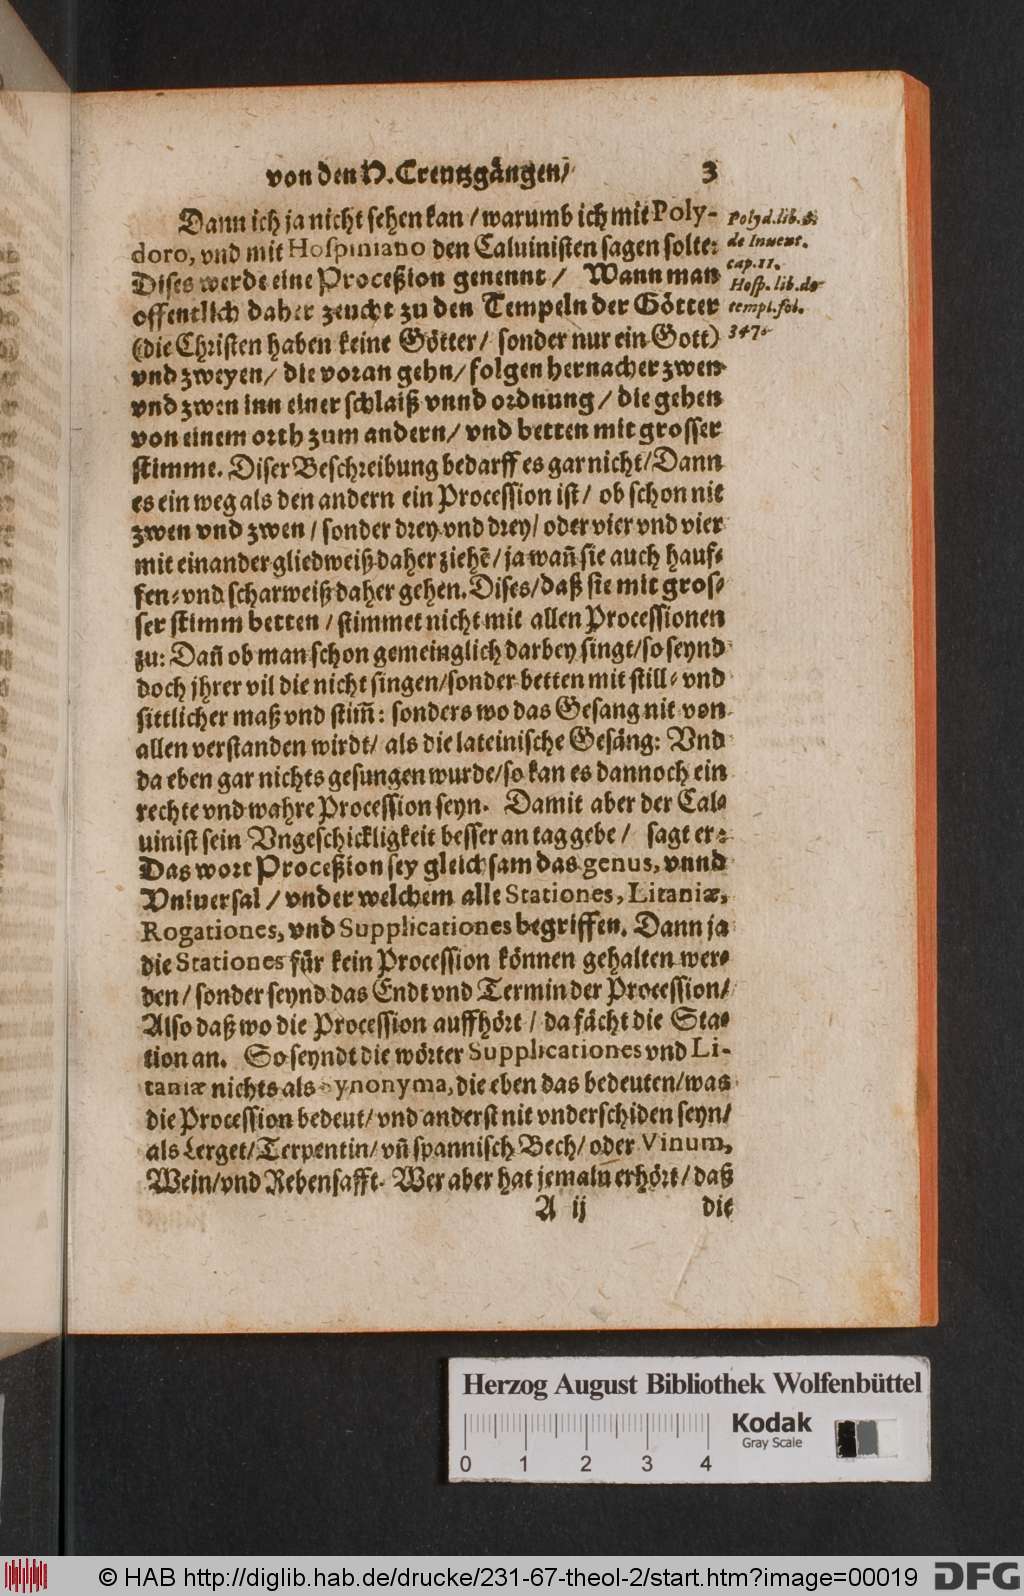 von den H. Creutzgängen/ 3
Dann ich ja nicht sehen kan / warumb ich mit Poly-
doro, vnd mit Hospiniano den Caluinisten sagen solte:
Dises werde eine Proceßion genennt / Wann man
offentlich daher zeucht zu den Tempeln der Götter
(die Christen haben keine Götter / sonder nur ein Gott)
vnd zweyen / die voran gehn / folgen hernacher zwen
vnd zwen inn einer schlaiß vnnd ordnung / die gehen
von einem orth zum andern / vnd betten mit grosser
stimme. Diser Beschreibung bedarff es gar nicht / Dann
es ein weg als den andern ein Procession ist / ob schon nit
zwen vnd zwen / sonder drey vnd drey / oder vier vnd vier
mit einander gliedweiß daher ziehẽ / ja wañ sie auch hauf-
fen- vnd scharweiß daher gehen. Dises / daß sie mit gros-
ser stimm betten / stimmet nicht mit allen Processionen
zu: Dañ ob man schon gemeinglich darbey singt / so seynd
doch jhrer vil die nicht singen / sonder betten mit still- vnd
sittlicher maß vnd stim̃: sonders wo das Gesang nit von
allen verstanden wirdt / als die lateinische Gesäng: Vnd
da eben gar nichts gesungen wurde / so kan es dannoch ein
rechte vnd wahre Procession seyn. Damit aber der Cal-
uinist sein Vngeschickligkeit besser an tag gebe / sagt er:
Das wort Proceßion sey gleichsam das genus, vnnd
Vniuersal / vnder welchem alle Stationes, Litaniæ,
Rogationes, vnd Supplicationes begriffen. Dann ja
die Stationes für kein Procession können gehalten wer-
den / sonder seynd das Endt vnd Termin der Procession /
Also daß wo die Procession auffhört / da fächt die Sta-
tion an. So seyndt die wörter Supplicationes vnd Li-
taniæ nichts als Synonyma, die eben das bedeuten / was
die Procession bedeut / vnd anderst nit vnderschiden seyn /
als Lerget / Terpentin / vñ spannisch Bech / oder Vinum,
Wein / vnd Rebensafft. Wer aber hat jemaln erhört / daß
A ij die
Polyd. lib. 8.
de Inuent.
cap. 11.
Hosp. lib. de
templ. fol.
347.
Herzog August Bibliothek Wolfenbüttel
Kodak
Gray Scale
0 1 2 3 4
© HAB http://diglib.hab.de/drucke/231-67-theol-2/start.htm?image=00019
DFG